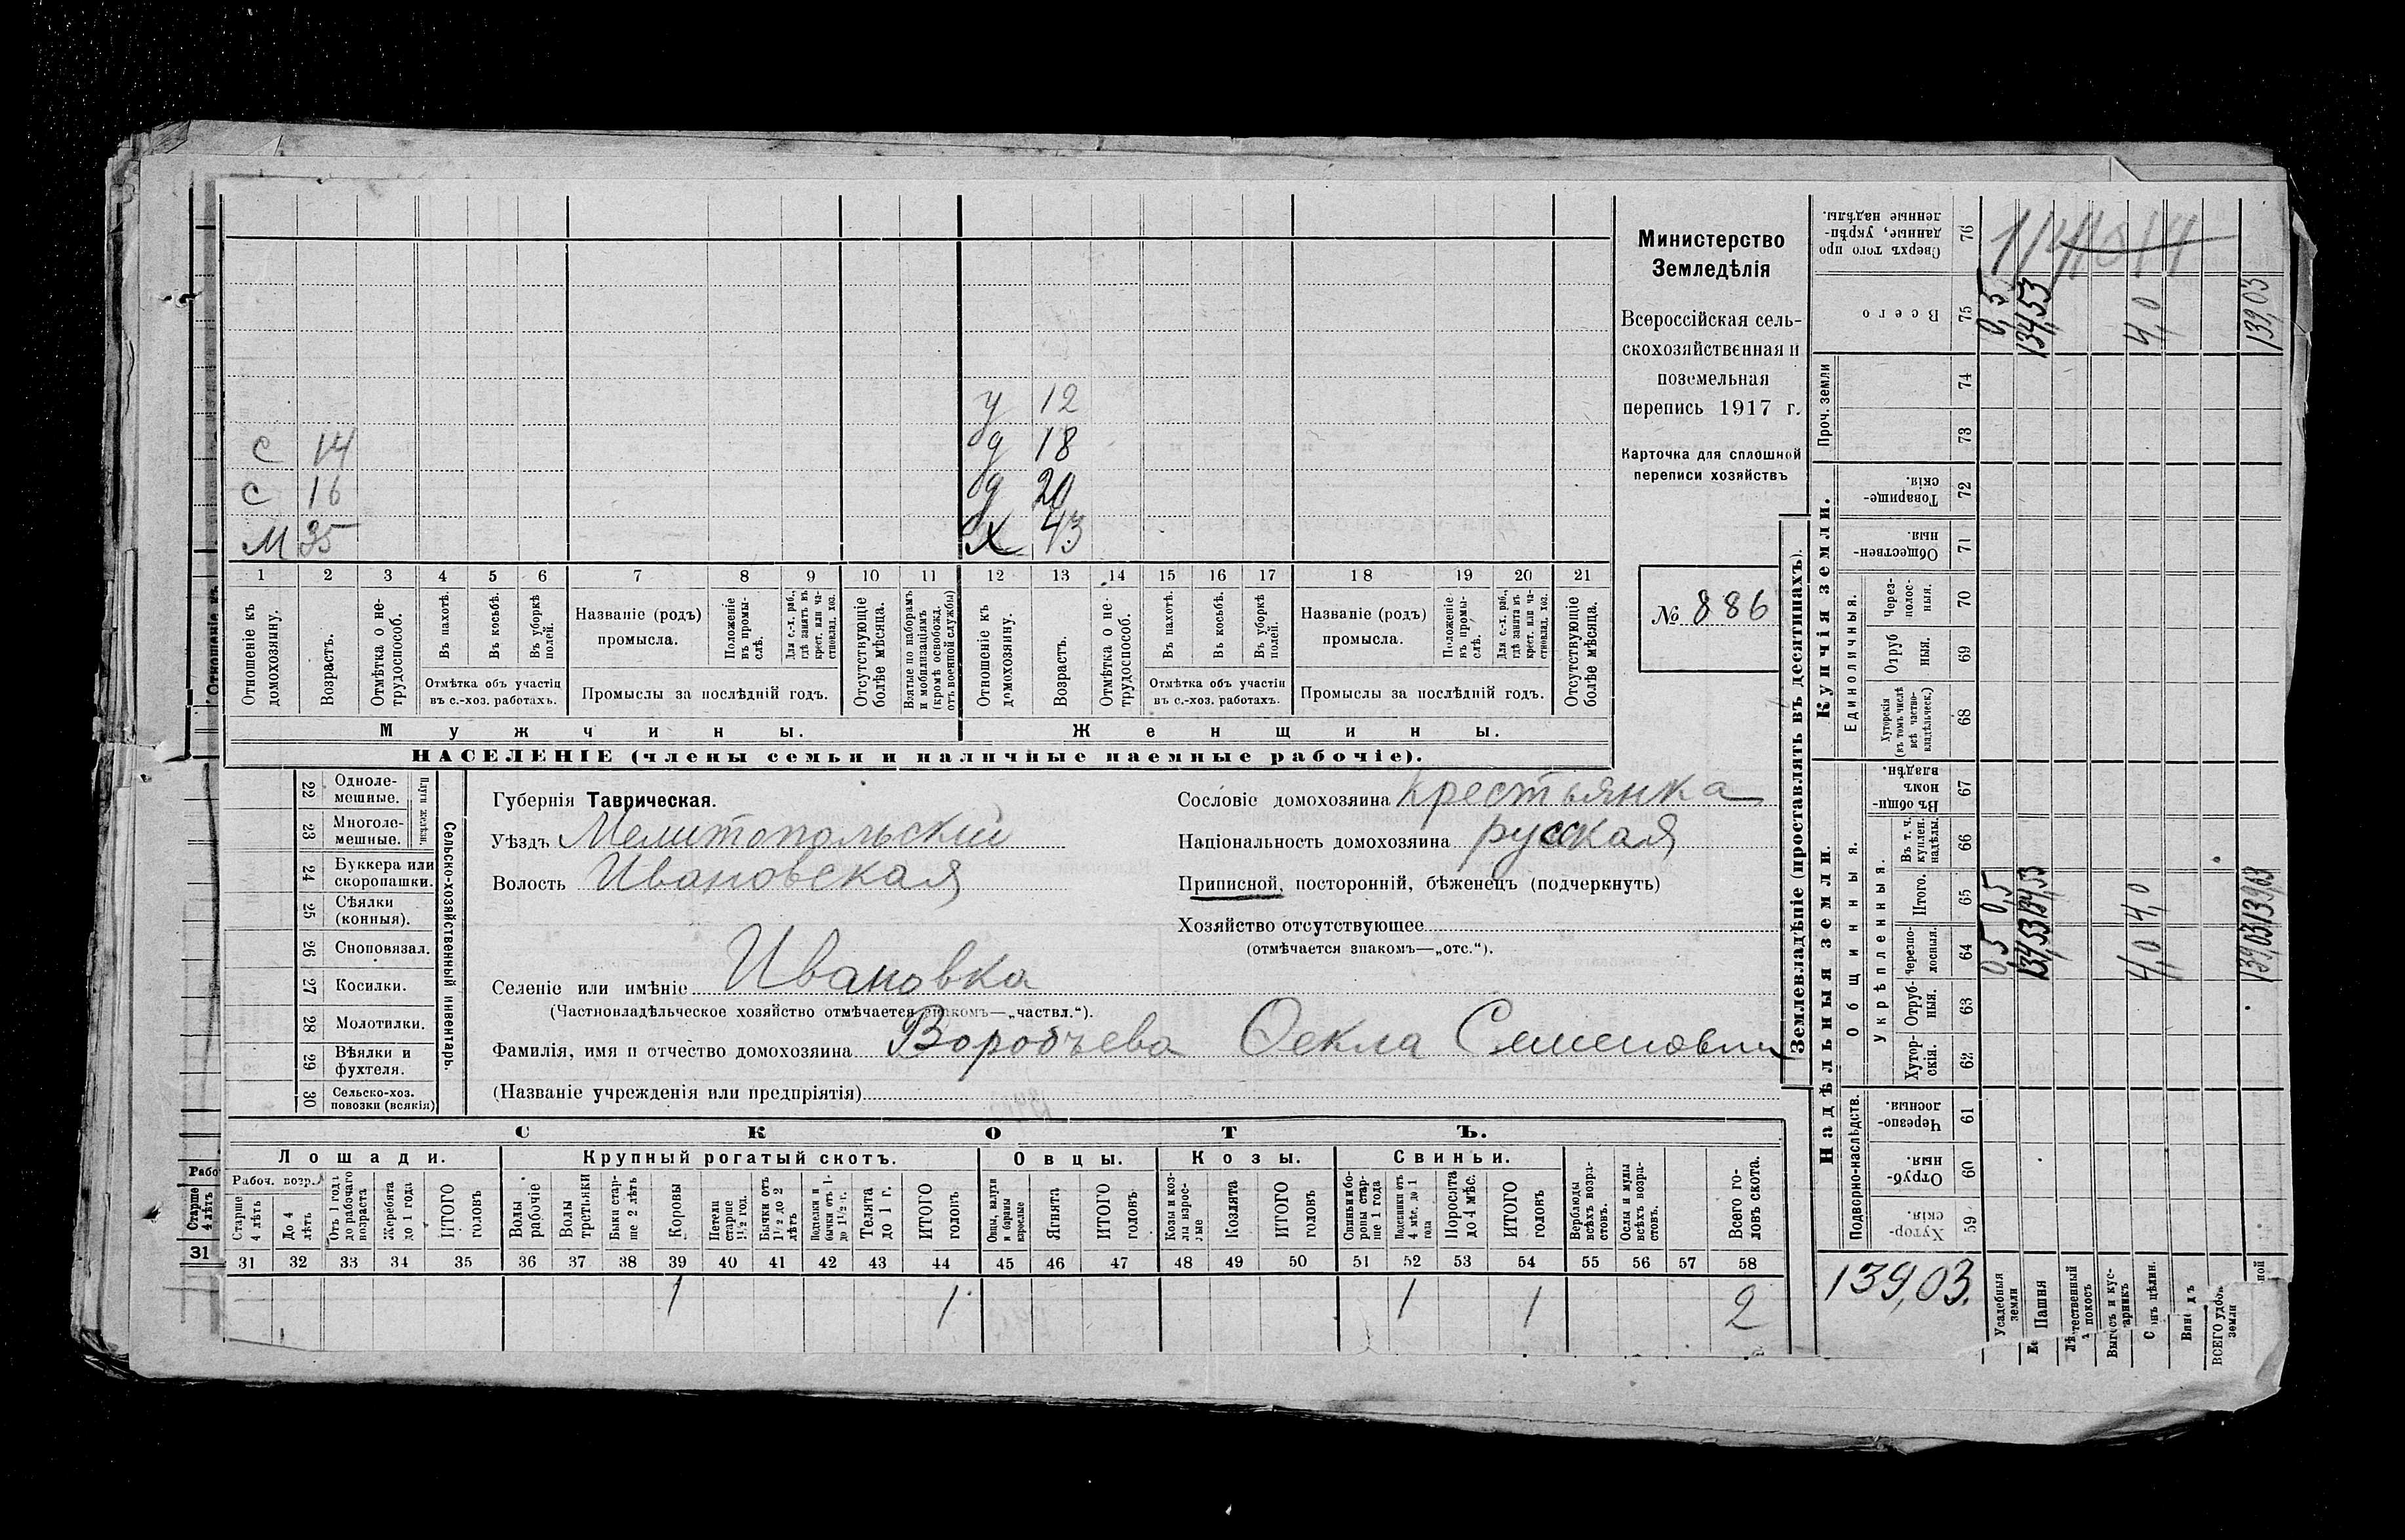 Министерство
Земледѣлія
Всероссійская сель-
скохозяйственная и
поземельная
перепись 1917 г.
Карточка для сплошной
переписи хозяйствъ
№ 886
у 12
с 14 д 18
с 16 д 20
м 35 х 43
1 2 3 4 5 6 7 8 9 10 11 12 13 14 15 16 17 18 19 20 21
Отношеніе къ домохозяину.
Возрастъ.
Отмѣтка о не-трудоспособ.
Въ пахотѣ.
Въ косьбѣ.
Въ уборкѣ полей.
Отмѣтка объ участіи
въ с.-хоз. работахъ.
Названіе (родъ)
промысла.
Положеніе въ промы-слѣ.
Для с.-х. раб., гдѣ занятъ въ крест. или ча-стновлад. хоз.
Промыслы за послѣдній годъ.
Отсутствующіе болѣе мѣсяца.
Взятые по наборамъ и мобилизаціямъ (кромѣ освобожд. отъ военной службы)
Отношеніе къ домохозяину.
Возрастъ.
Отмѣтка о не-трудоспособ.
Въ пахотѣ.
Въ косьбѣ.
Въ уборкѣ полей.
Отмѣтка объ участіи
въ с.-хоз. работахъ.
Названіе (родъ)
промысла.
Положеніе въ промы-слѣ.
Для с.-х. раб., гдѣ занята въ крест. или ча-стновлад. хоз.
Промыслы за послѣдній годъ.
Отсутствующіе болѣе мѣсяца.
Мужчины. Женщины.
НАСЕЛЕНІЕ (члены семьи и наличные наемные рабочіе).
22 Одноле-мешные.
23 Многоле-мешные.
24 Буккера или скоропашки.
25 Сѣялки (конныя).
26 Сноповязал.
27 Косилки.
28 Молотилки.
29 Вѣялки и фухтеля.
30 Сельско-хоз. повозки (всякія)
Сельско-хозяйственный инвентарь.
Губернія Таврическая.
Уѣздъ Мелитопольскій
Волость Ивановская
Сословіе домохозяина крестьянка
Національность домохозяина русская
Приписной, посторонній, бѣженецъ (подчеркнуть)
Хозяйство отсутствующее
(отмѣчается знакомъ—„отс.“).
Селеніе или имѣніе Ивановка
(Частновладѣльческое хозяйство отмѣчается знакомъ—„частвл.“).
Фамилія, имя и отчество домохозяина Воробьева Ѳекла Семеновны
(Названіе учрежденія или предпріятія)
СКОТЪ.
Лошади. Крупный рогатый скотъ. Овцы. Козы. Свиньи.
Рабоч. возр.
Старше 4 лѣтъ
До 4 лѣтъ
Отъ 1 года до рабочаго возраста
Жеребята до 1 года
ИТОГО головъ
Волы рабочіе
Волы третьяки
Быки стар-ше 2 лѣтъ
Коровы
Нетели старше 1½ год.
Бычки отъ 1½ до 2 лѣтъ
Телята до 1 г.
ИТОГО головъ
Ягнята
ИТОГО головъ
Козы и коз-лы взрос-лые
Козлята
ИТОГО головъ
Свиньи и бо-ровы стар-ше 1 года
Поросята до 4 мѣс.
ИТОГО головъ
Верблюды всѣхъ возра-стовъ.
Ослы и мулы всѣхъ возра-стовъ.
Всего го-ловъ скота.
31 32 33 34 35 36 37 38 39 40 41 42 43 44 45 46 47 48 49 50 51 52 53 54 55 56 57 58
1 1 1 1 2
Рабо
Старше 4 лѣтъ
31
Землевладѣніе (проставлять въ десятинахъ).
Купчія земли.
Надѣльныя земли.
Сверхъ того про данные, укрѣп-ленные надѣлы. 76
Всего 75 0,5 134,53 4,0 139,03
Проч. земли 74
73
Товарище-скія. 72
Обществен-ныя. 71
Единоличныя.
Через-полос-ныя. 70
Отруб ныя. 69
Хуторскія (въ томъ числѣ всѣ частно-владѣльческ.) 68
Въ общи-номъ владѣн. 67
Общинныя.
Укрѣпленныя.
Въ т. ч. куплен. надѣлы. 66
Итого. 65 0,5 134,53 4,0 139,03
Черезпо-лосныя. 64 0,5 134,53 4,0 139,03
Отруб-ныя. 63
Хутор-скія. 62
Подворно-наслѣдств.
Черезпо-лосныя. 61
Отруб-ныя. 60
Хутор-скія. 59
139,03.
Усадебныя земли
Пашня
ВСЕГО удобн земли